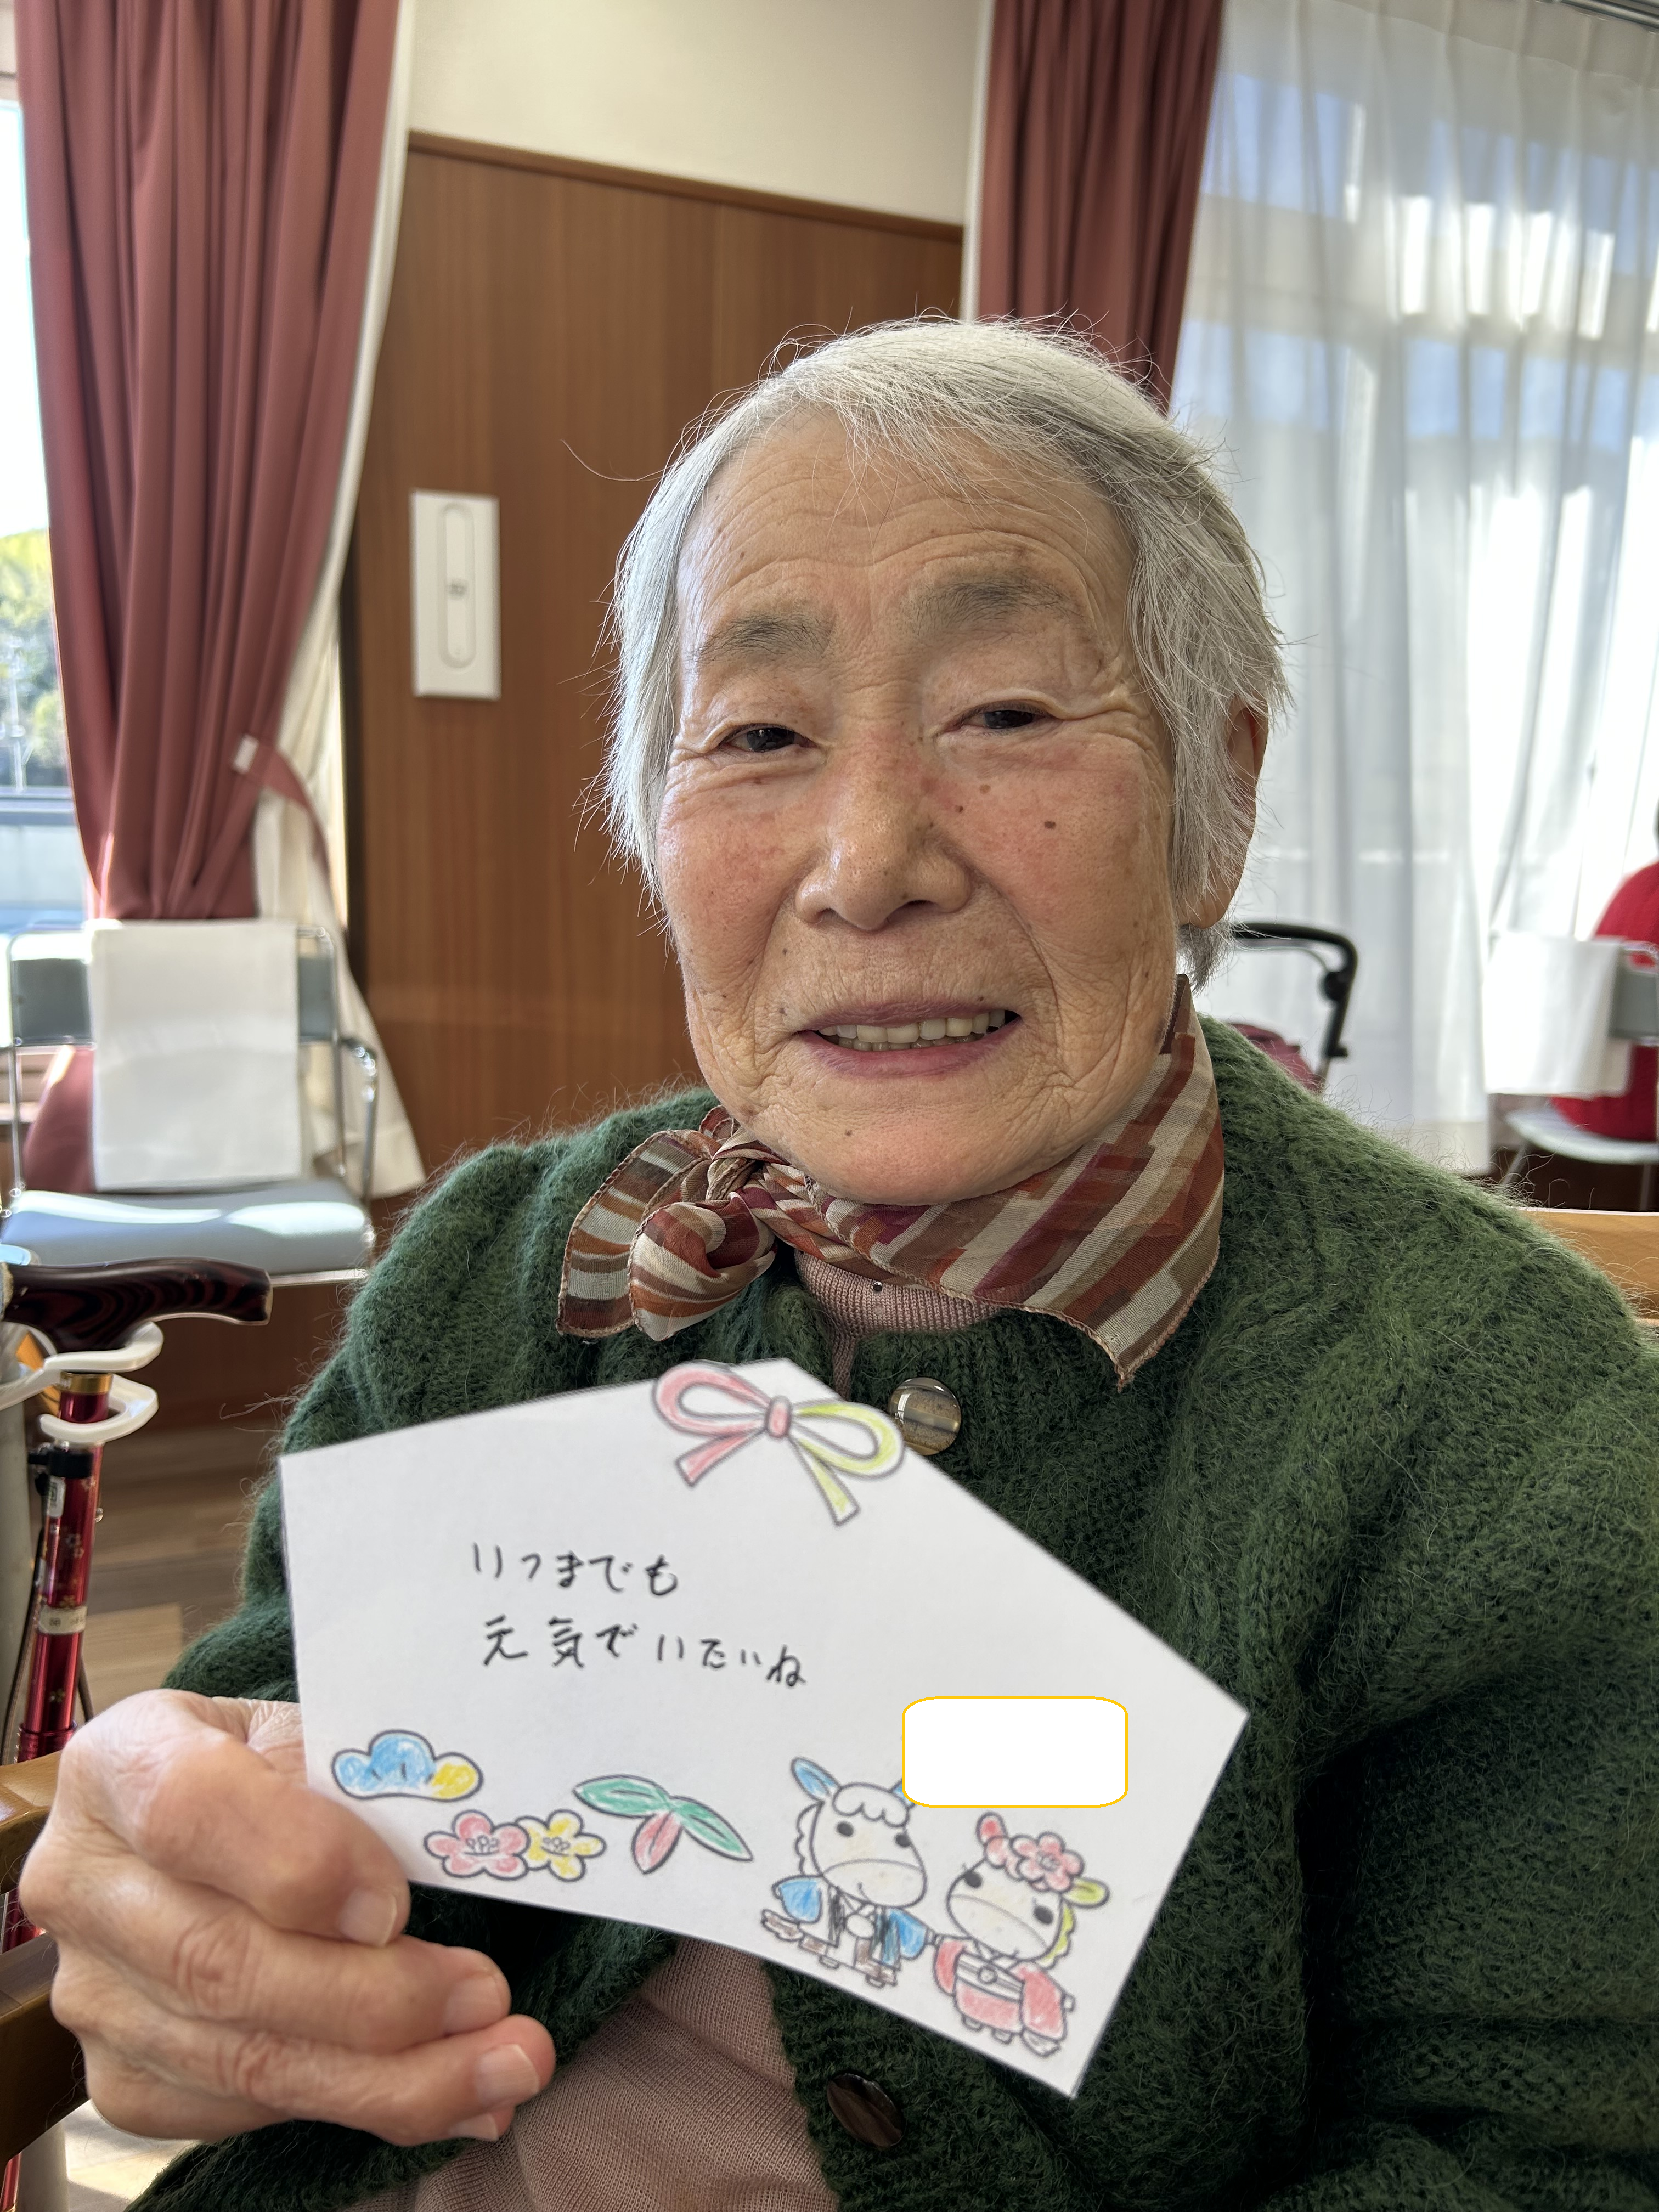 いつまでも
元気でいたいね